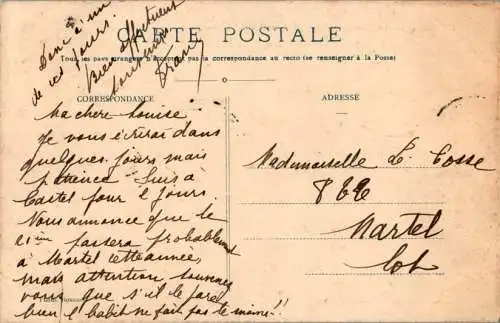 CARTE POSTALE
Tous les pays étrangers n'acceptent pas la correspondance au recto (se renseigner à la Poste)
CORRESPONDANCE
Ma chère Louise
Je vous écrirai dans
quelques jours mais
patience suis à
Castel pour 2 jours
Vous annonce que le
21ème passera probablement
à Martel cette année,
mais attention souvenez
vous que s'il le
bien l'habit ne fait pas le moine!!
Donc à un
de ces jours.
Bien affectueux
souvenirs
ADRESSE
Mademoiselle L. Cosse
Martel
Lot